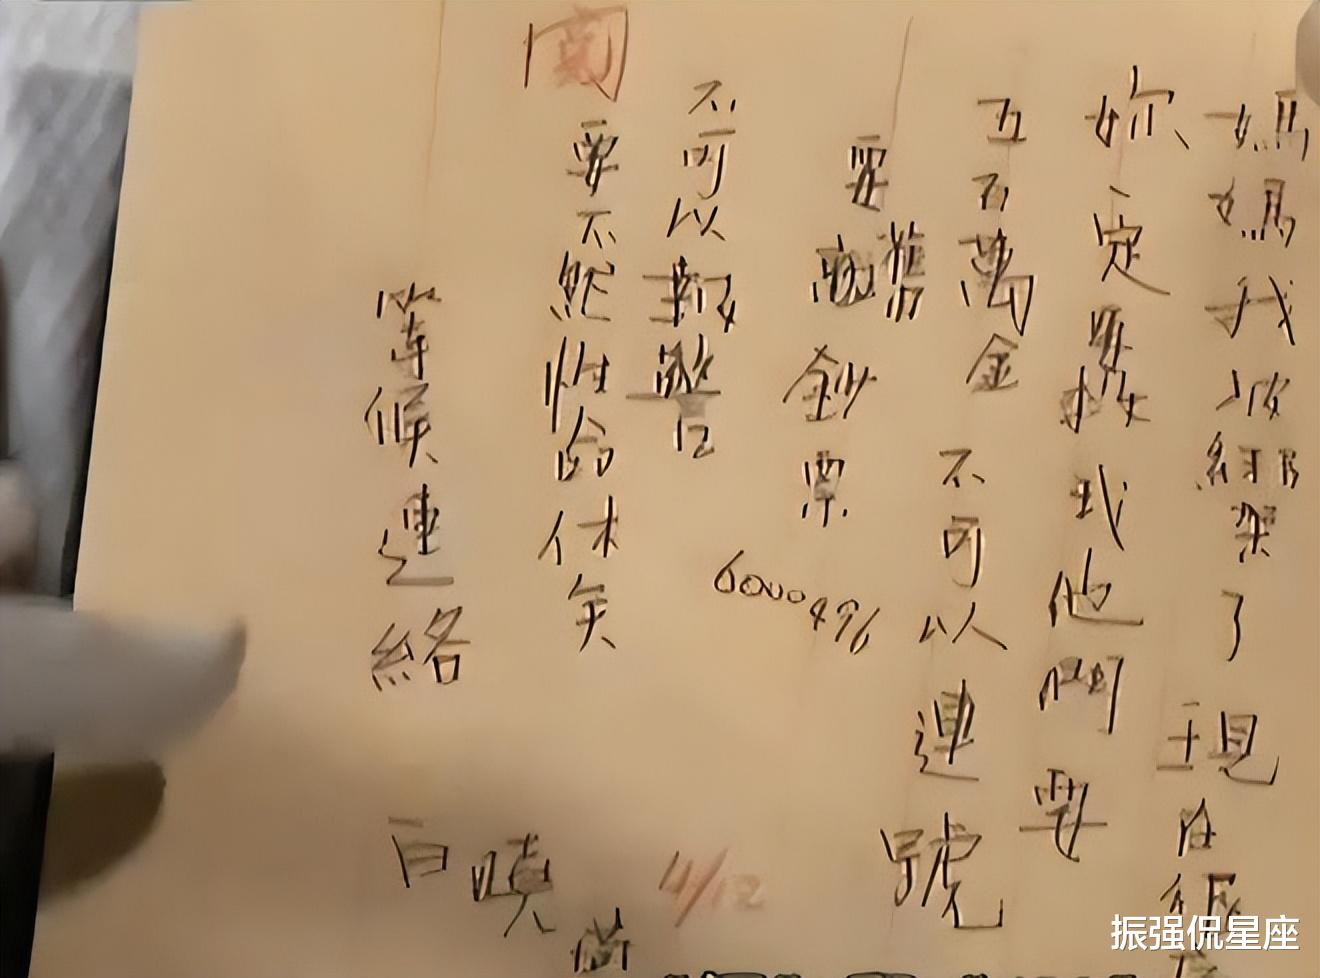 媽媽我被綁架了 現在很
妳一定要救我他們要
五百萬美金 不可以連號
要舊鈔票
不可以報警
要不然性命休矣
等候連絡
白曉
6000496
4/12
振强侃星座